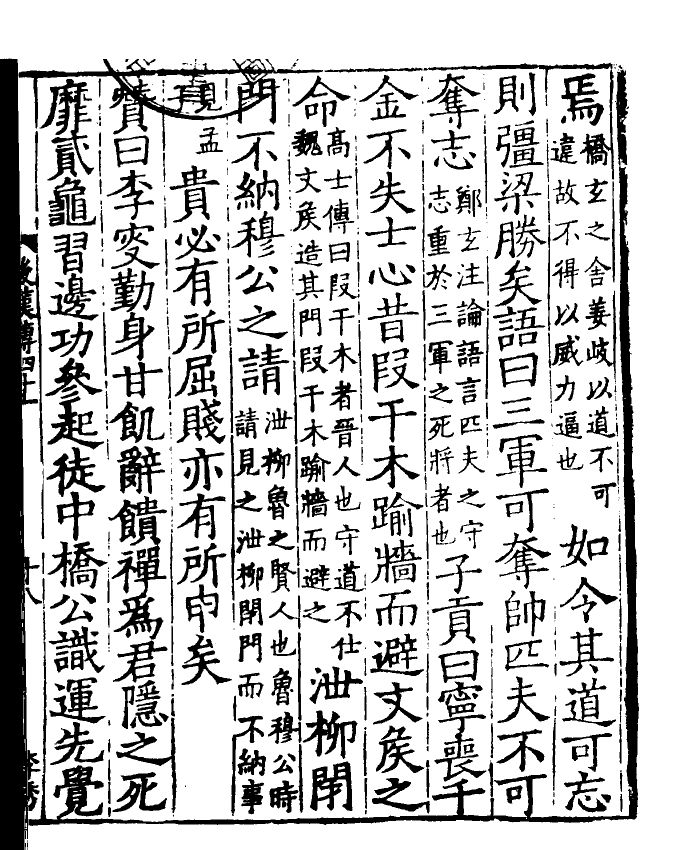 焉橋玄之舍姜歧以道不可
違故不得以威力逼也如令其道可忘
則彊梁勝矣語曰三軍可奪帥匹夫不可
奪志鄭玄注論語言匹夫之守
志重於三軍之死將者也子貢曰寧喪千
金不失士心昔段干木踰牆而避文矦之
命高士傳曰段干木者晉人也守道不仕
魏文矦造其門段干木踰牆而避之泄柳閉
門不納穆公之請泄柳魯之賢人也魯穆公時
請見之泄柳閉門而不納事
見孟貴必有所屈賤亦有所申矣
贊曰李叟勤身甘飢辭饋禪爲君隱之死
靡貳龜習邊功參起徒中橋公識運先覺
後漢傳四十一
十八
李秀